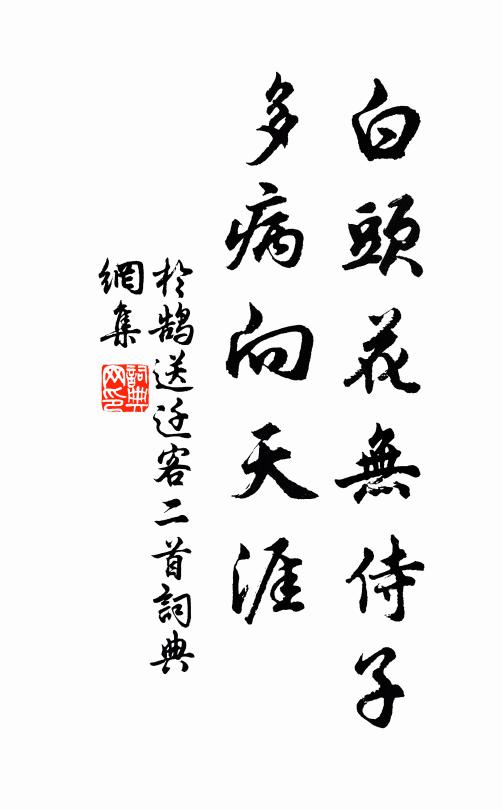 白頭花無侍子
多病向天涯
於鵠送迁客二首詞典
網集
詞典
网印